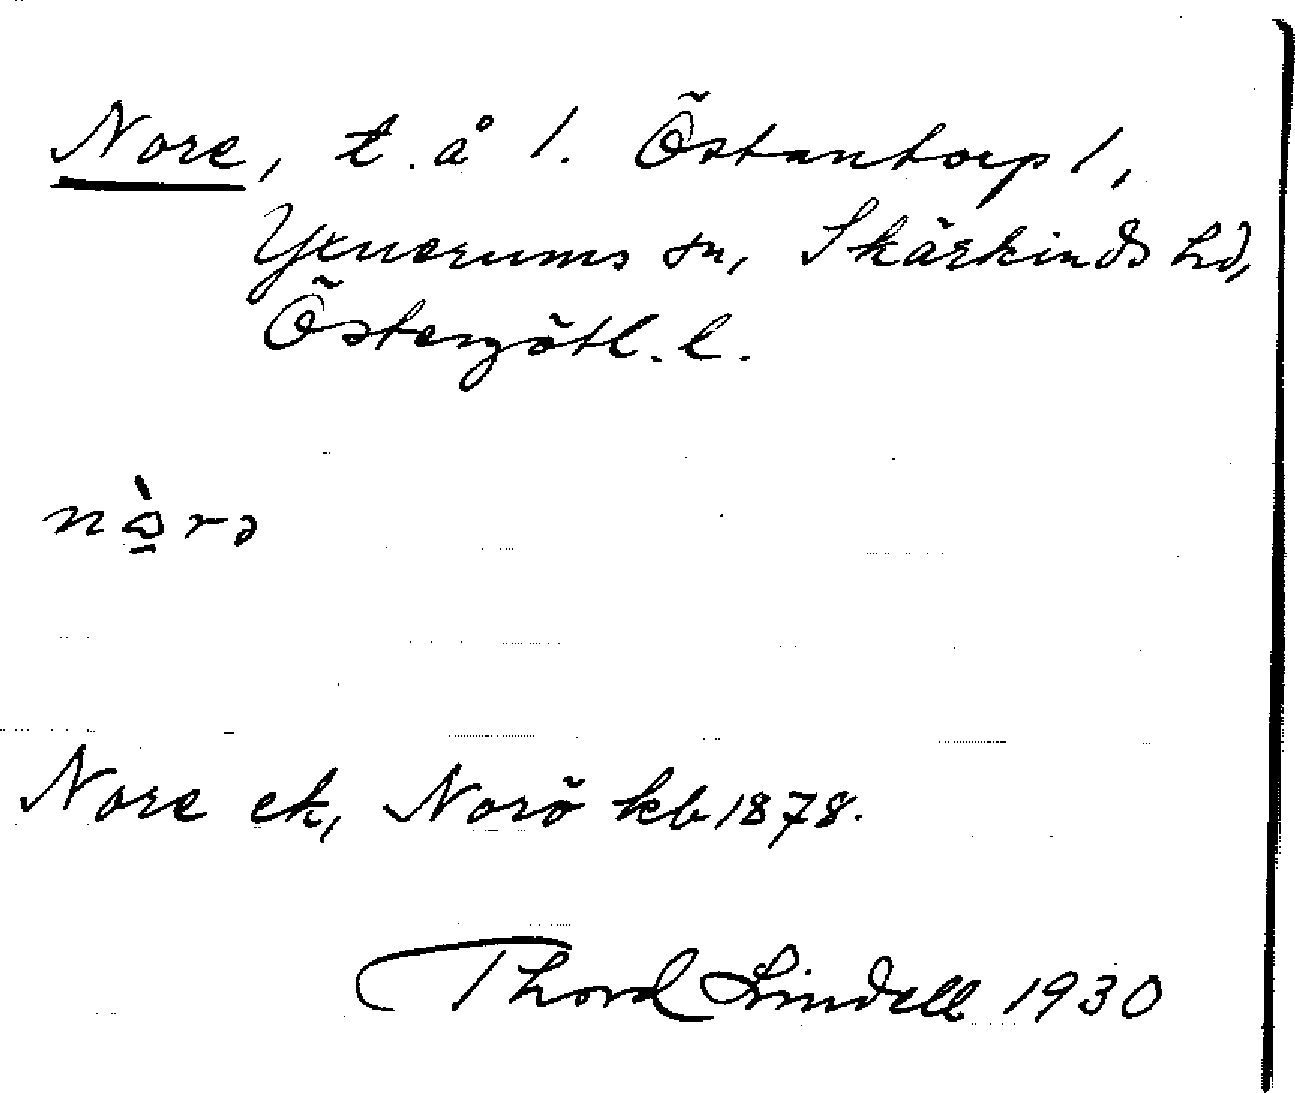 Nore, t. å 1. Östantorp 1,
Yxnerums sn, Skärkinds hd,
Östergötl. l.
nὰ̱rə
Nore ek, Norö kb 1878.
Thord Lindell 1930